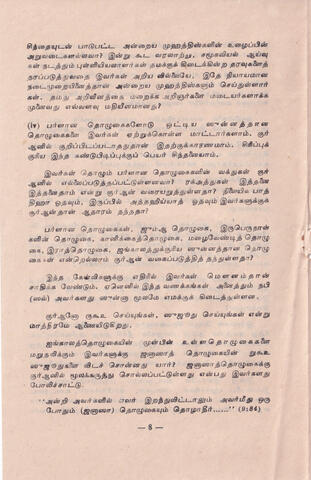 சிந்தையுடன் பாடுபட்ட அன்றைய முஹத்திஸ்களின் உழைப்பின்
அறுவடைகளல்லவா? இன்று கூட வரலாற்று, சமூகவியல் ஆய்வு
கள் நடத்தும் புள்ளியியலாளர்கள் தமக்குக் கிடைக்கின்ற தரவுகளைத்
தரப்படுத்துவதை இவர்கள் அறிய வில்லையே, இதே நியாயமான
நடைமுறையினைத்தான் அன்றைய முஹத்திஸ்களும் செய்துள்ளார்
கள். தமது அறிவீனத்தை மறைக்க அறிஞர்களை மடையர்களாக்க
முனைவது எவ்வளவு மதியீனமானது?
(iv) பர்ளான தொழுகைகளோடு ஒட்டிய ஸுன்னத்தான
தொழுகைகளை இவர்கள் ஏற்றுக்கொள்ள மாட்டார்களாம். குர்
ஆனில் குறிப்பிடப்படாததுதான் இதற்குக்காரணமாம். சிரிப்புக்
குரிய இந்த கண்டுபிடிப்புக்குப் பெயர் சிந்தனையாம்.
இவர்கள் தொழும் பர்ளான தொழுகைகளின் வக்துகள் குர்
ஆனில் எல்லைப்படுத்தப்பட்டுள்ளனவா? ரக்அத்துகள் இத்தனை
இத்தனைதாம் என்று குர்ஆன் வரையறுத்துள்ளதா? நிலையில் பாத்
திஹா ஓதவும், இருப்பில் அத்தஹிய்யாத் ஓதவும் இவர்களுக்குக்
குர்ஆன்தான் ஆதாரம் தந்ததா?
பர்ளான தொழுகைகள், ஜும்ஆ தொழுகை, இருபெருநாள்
களின் தொழுகை, காணிக்கைத்தொழுகை, மழைவேண்டித் தொழு
கை, இராத்தொழுகை, ஐங்காலத்துக்குரிய ஸுன்னத்தான தொழு
கைகள் என்றெல்லாம் குர்ஆன் வகைப்படுத்தித் தந்துள்ளதா?
இந்த கேள்விகளுக்கு எதிரில் இவர்கள் மௌனம்தான்
சாதிக்க வேண்டும். ஏனெனில் இந்த வணக்கங்கள் அனைத்தும் நபி
(ஸல்) அவர்களது ஸுன்னா மூலமே எமக்குக் கிடைத்துள்ளன.
குர்ஆனோ ருகூஉ செய்யுங்கள், ஸுஜூது செய்யுங்கள் என்று
மாத்திரமே ஆணையிடுகிறது.
ஐவ்காலத்தொழுகையின் முன்பின் உள்ள தொழுகைகளை
மறுதலிக்கும் இவர்களுக்கு ஜனாஸாத் தொழுகையின் றுகூஉ
ஸுஜூதுகளை விடச் சொன்னது யார்? ஜனாஸாத்தொழுகைக்கு
குர்ஆனில் மூலக்கருத்து சொல்லப்பட்டுள்ளது என்பது இவர்களது
போலிச்சாட்டு.
"அன்றி அவர்களில் எவர் இறந்துவிட்டாலும் அவர்மீது ஒரு
போதும் (ஜனாஸா) தொழுகையும் தொழாதீர்......" (9:84)
— 8 —